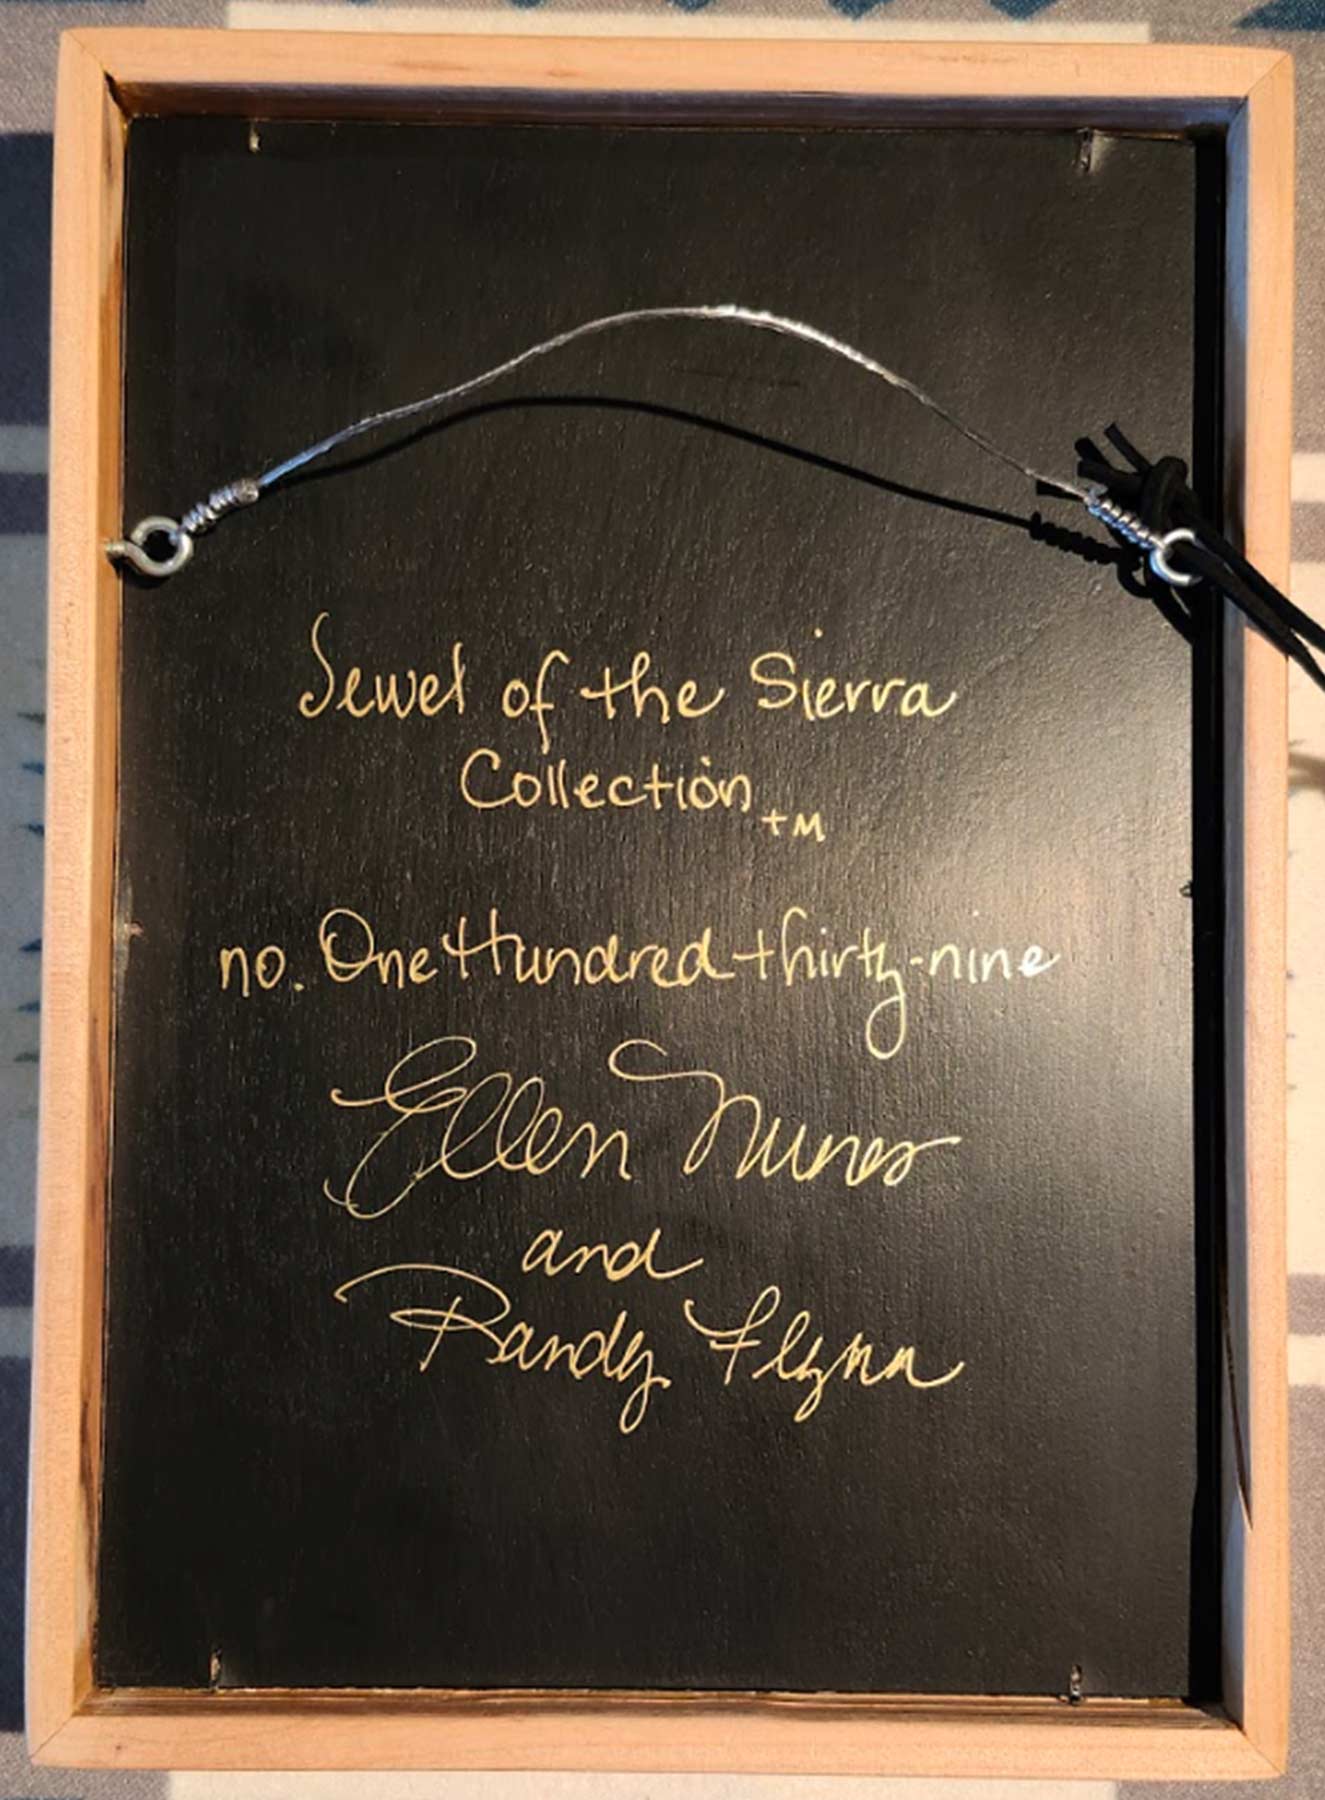 Jewel of the Sierra
Collection TM
no. One Hundred thirty-nine
Ellen Nunes
and
Randy Flynn